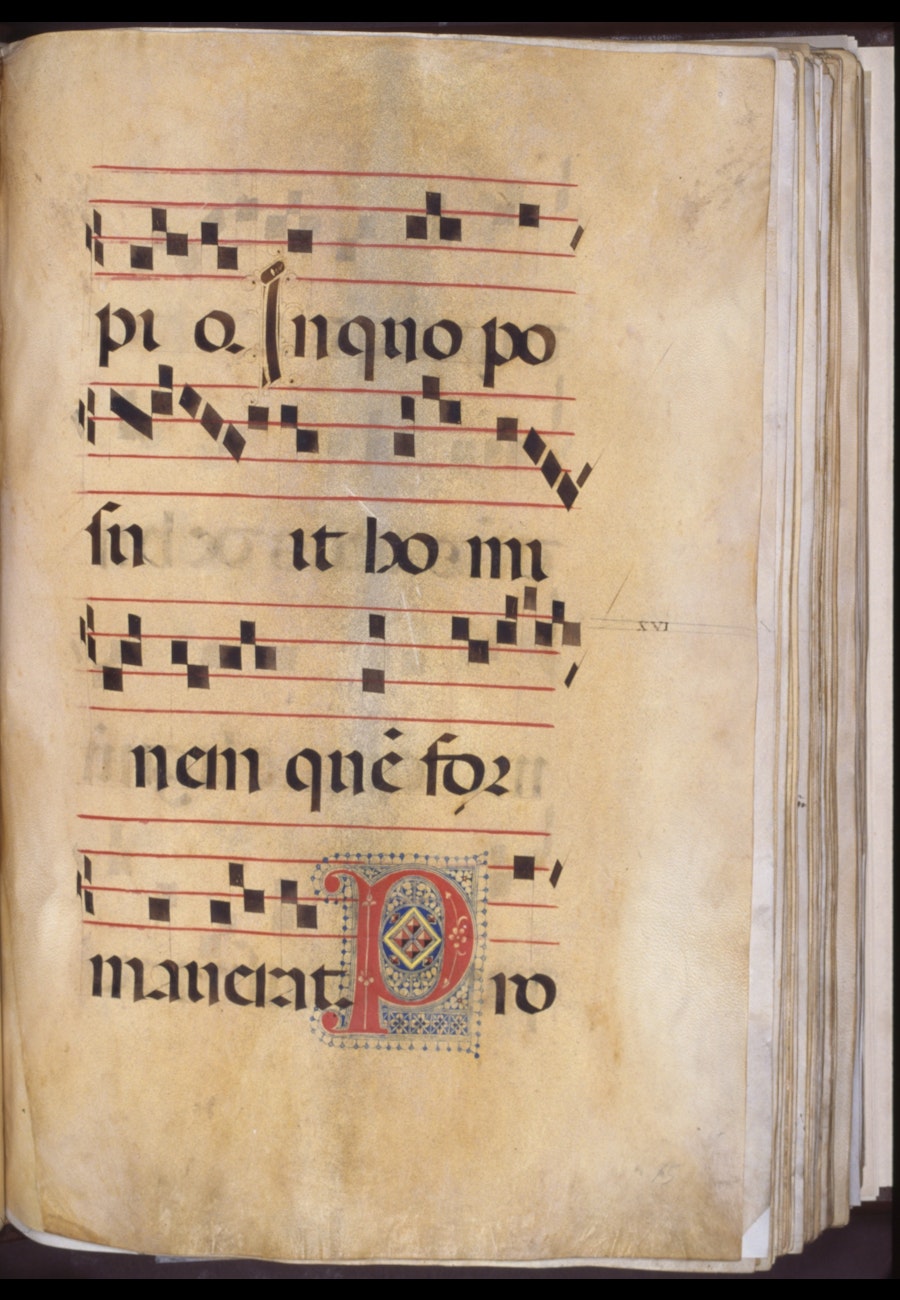 pı o. In quo po
ſu ıt ho mı
nem quē for
mauerat. P ro
XVI